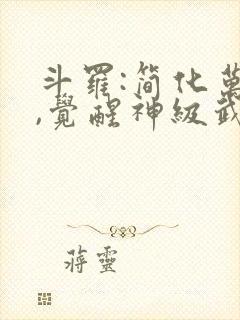 斗羅:簡化萬
,覺醒神級武
蔣靈